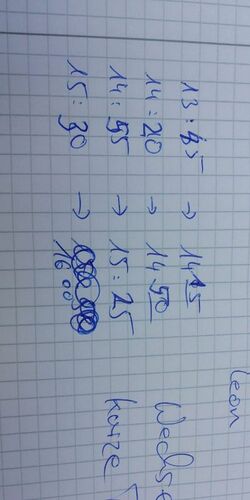 Leon
13:45 → 14 15
14:20 → 14 50
14:55 → 15:25
15:30 → 16 00
Wechse
kurze